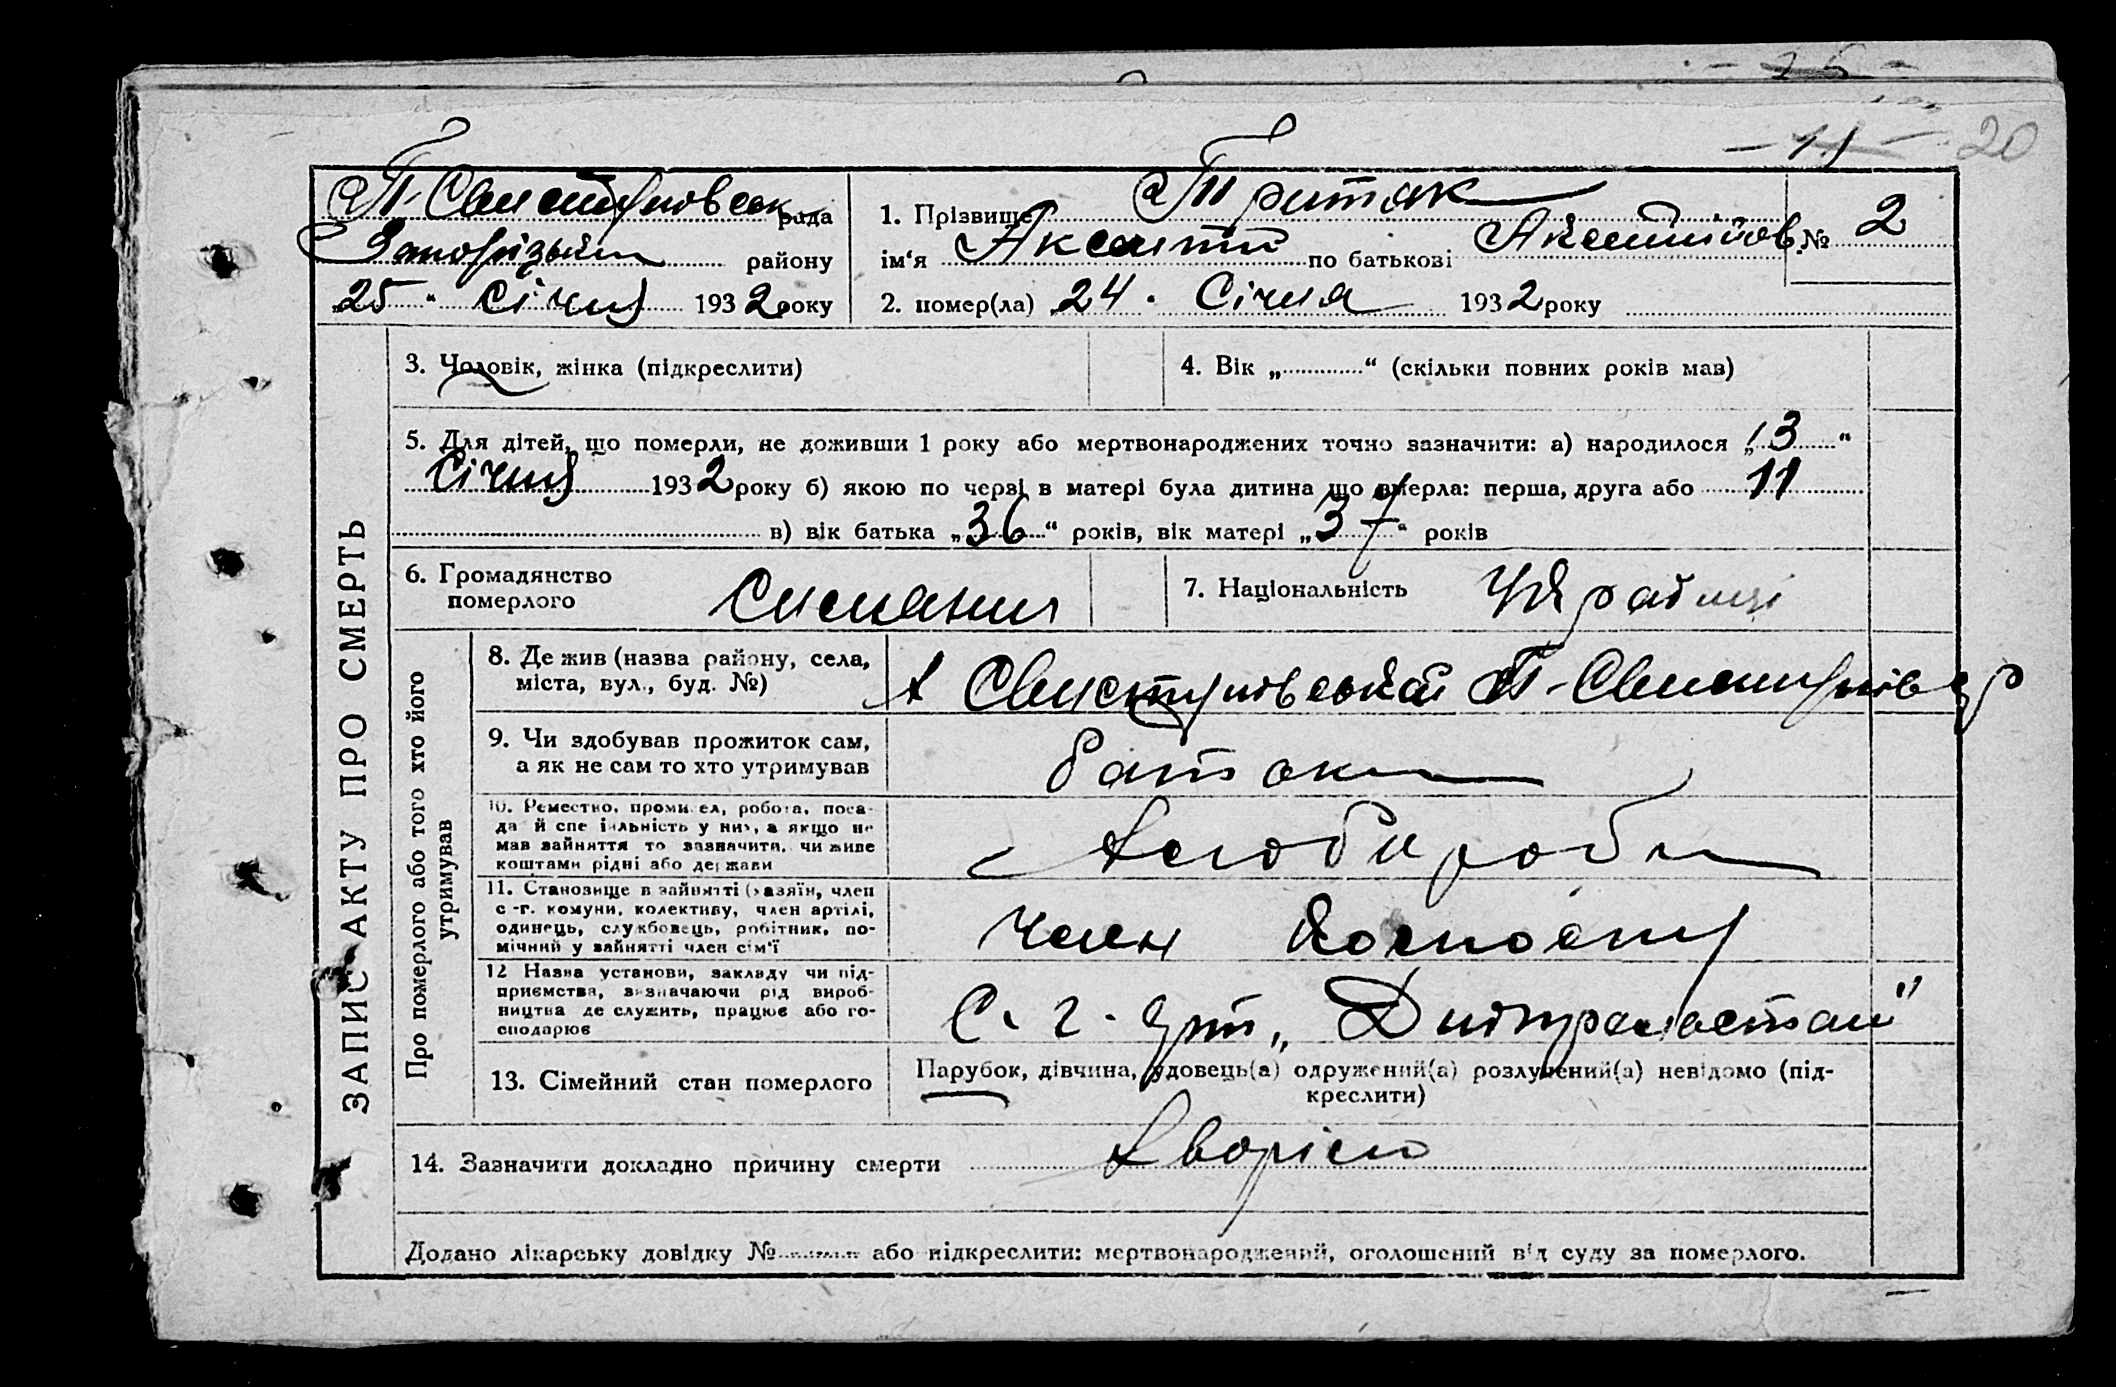 20
П-Свистуновськ рада
1. Прізвище Притак
№ 2
району
ім'я Аксентій по батькові
„25“ Січня 1932 року
2. помер(ла) 24. Січня 1932 року
3. Чоловік, жінка (підкреслити)
4. Вік „.............“ (скільки повних років мав)
5. Для дітей, що померли, не доживши 1 року або мертвонароджених точно зазначити: а) народилося „13“
Січня 1932 року б) якою по черві в матері була дитина що вмерла: перша, друга або 11
в) вік батька „36“ років, вік матері „37“ років
6. Громадянство
померлого
7. Національність
ЗАПИС АКТУ ПРО СМЕРТЬ
Про померлого або того хто його
утримував
8. Де жив (назва району, села,
міста, вул., буд. №)
9. Чи здобував прожиток сам,
а як не сам то хто утримував
батьки
10. Ремество, промисел, робота, поса-
да й спеціяльність у них, а якщо не
мав зайняття то зазначити, чи живе
коштами рідні або держави
Хлібороби
11. Становище в зайнятті (хазяїн, член
с.-г. комуни, колективу, член артілі,
одинець, службовець, робітник, по-
мічний у зайнятті член сім'ї
член
12 Назва установи, закладу чи під-
приємства, зазначаючи рід вироб-
ництва де служить, працює або го-
сподарює
С. г. арт.
13. Сімейний стан померлого
Парубок, дівчина, удовець(а) одружений(а) розлучений(а) невідомо (під-
креслити)
14. Зазначити докладно причину смерти
Хворів
Додано лікарську довідку №.......... або підкреслити: мертвонароджений, оголошений від суду за померлого.